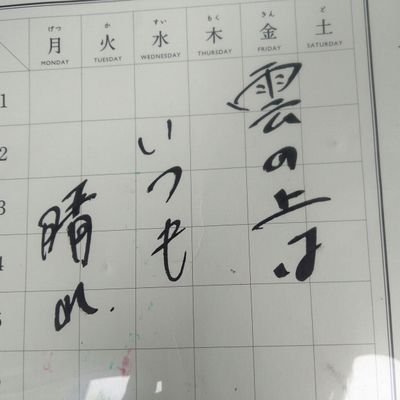 げつ か すい もく きん ど
月 火 水 木 金 土
MONDAY TUESDAY WEDNESDAY THURSDAY FRIDAY SATURDAY
1
2
3
4
5
雲の上は
いつも
晴れ.